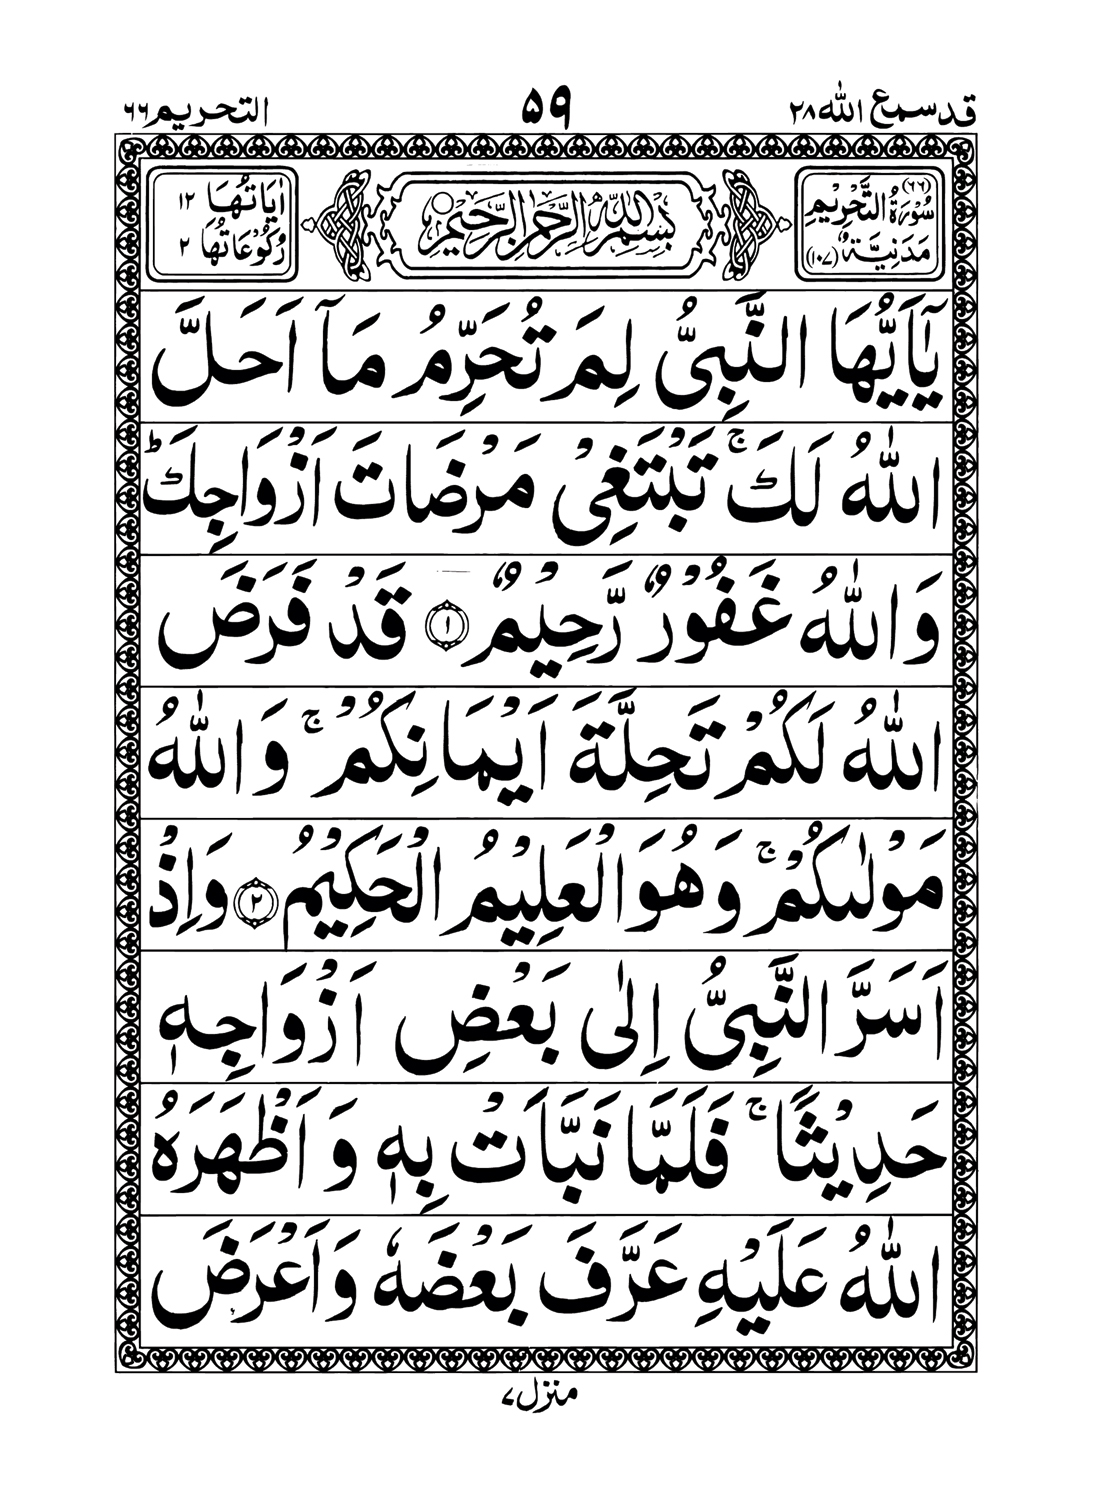 قد سمع الله ٢٨
۵۹
التحريم ٦٦
(٦٦) سُوْرَةُ التَّحْرِيْمِ مَدَنِيَّةٌ (١٠٧)
بِسْمِ اللهِ الرَّحْمٰنِ الرَّحِيْمِ
اٰيَاتُهَا ١٢
رُكُوْعَاتُهَا ٢
يٰۤاَيُّهَا النَّبِيُّ لِمَ تُحَرِّمُ مَاۤ اَحَلَّ
اللّٰهُ لَكَ ۚ تَبْتَغِيْ مَرْضَاتَ اَزْوَاجِكَ ؕ
وَاللّٰهُ غَفُوْرٌ رَّحِيْمٌ ۝١ قَدْ فَرَضَ
اللّٰهُ لَكُمْ تَحِلَّةَ اَيْمَانِكُمْ ۚ وَاللّٰهُ
مَوْلٰىكُمْ ۚ وَهُوَ الْعَلِيْمُ الْحَكِيْمُ ۝٢ وَاِذْ
اَسَرَّ النَّبِيُّ اِلٰى بَعْضِ اَزْوَاجِهٖ
حَدِيْثًا ۚ فَلَمَّا نَبَّاَتْ بِهٖ وَ اَظْهَرَهُ
اللّٰهُ عَلَيْهِ عَرَّفَ بَعْضَهٗ وَاَعْرَضَ
منزل ٧